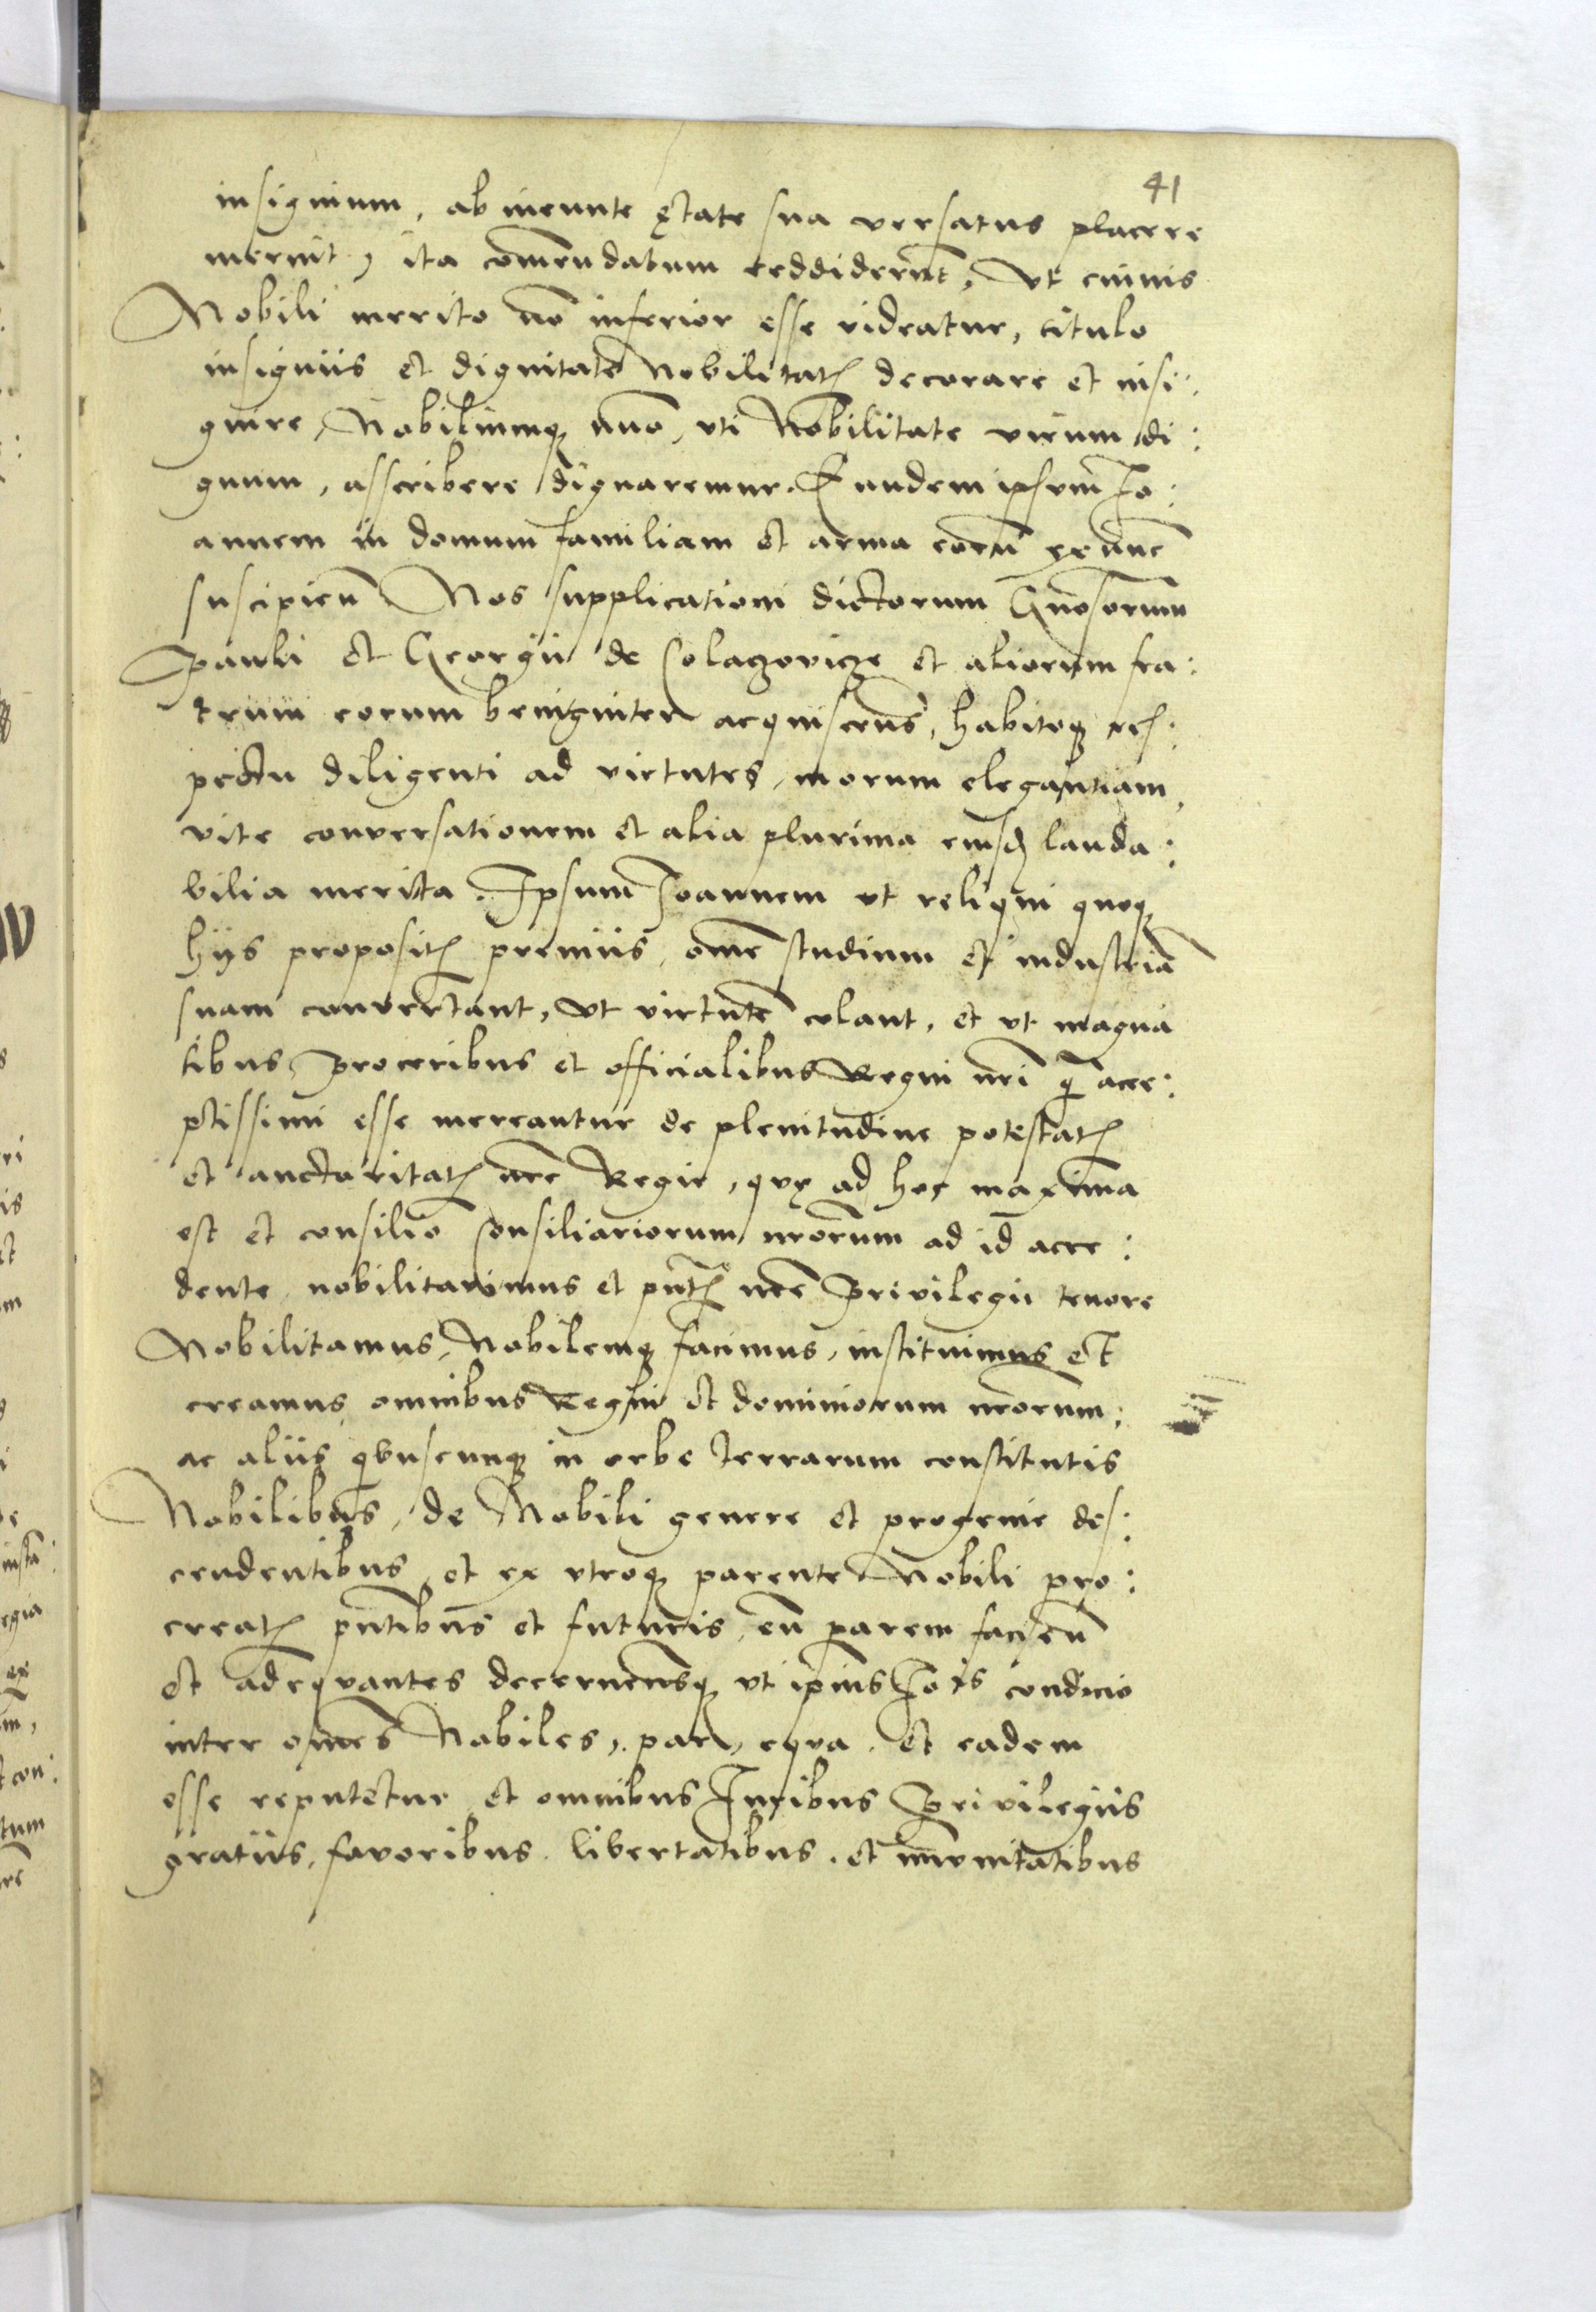 41
insignium, ab ineunte ętate sua versatus placere
meruit, ita com̄endatum reddiderūt, Vt cuiuis
Nobili merito nō inferior esse videatur, titulo
insigniis et dignitate Nobilitatꝭ decorare et insi:
gnire, Nobiliumqꝫ nūo, vti Nobilitate virum di:
gnum, asscribere dignaremur. Eundem ipsum Jo:
annem in domum familiam et arma eorū ex nūc
suscipien̄ Nos supplicationi dictorum Gn̄osorum
Pauli et Georgii de Solaczovicze et aliorum fra:
trum eorum benigniter acquiscen̄s, habitoqꝫ res:
pectu diligenti ad virtutes, morum elegantiam,
vite conversationem et alia plurima eiusd̄ lauda:
bilia merita. Ipsum Joannem vt reliqui quoqꝫ
hijs propositꝭ premiis, om̄e studium et industriā
suam convertant, Vt virtutē colant, et vt magna
tibus, Proceribus et officialibus Regni nr̄i qꝫ acce:
ptissimi esse mereantur de plenitudine potestatꝭ
et auctoritatꝭ nr̄e Regie, quę ad hoc maxima
est et consilio Consiliariorum nr̄orum ad id acce:
dente nobilitavimus et pn̄tꝭ nr̄e Privilegii tenore
Nobilitamus, Nobilemqꝫ facimus, instituimus et
creamus omnibus Regni et dominiorum nr̄orum,
ac aliis qibuscunqꝫ in orbe terrarum constitutis
Nobilibus, de Nobili genere et progenie des:
cendentibus, et ex vtroqꝫ parente Nobili pro:
creatꝭ pn̄tibus et futuris, eū parem facien̄
et adequantes decernen̄sqꝫ vt ip̄ius Jois condicio
inter om̄es Nobiles, par, equa, et eadem
esse reputetur et omnibus Juribus Privilegiis
gratiis, favoribus, libertatibus, et im̄unitatibus